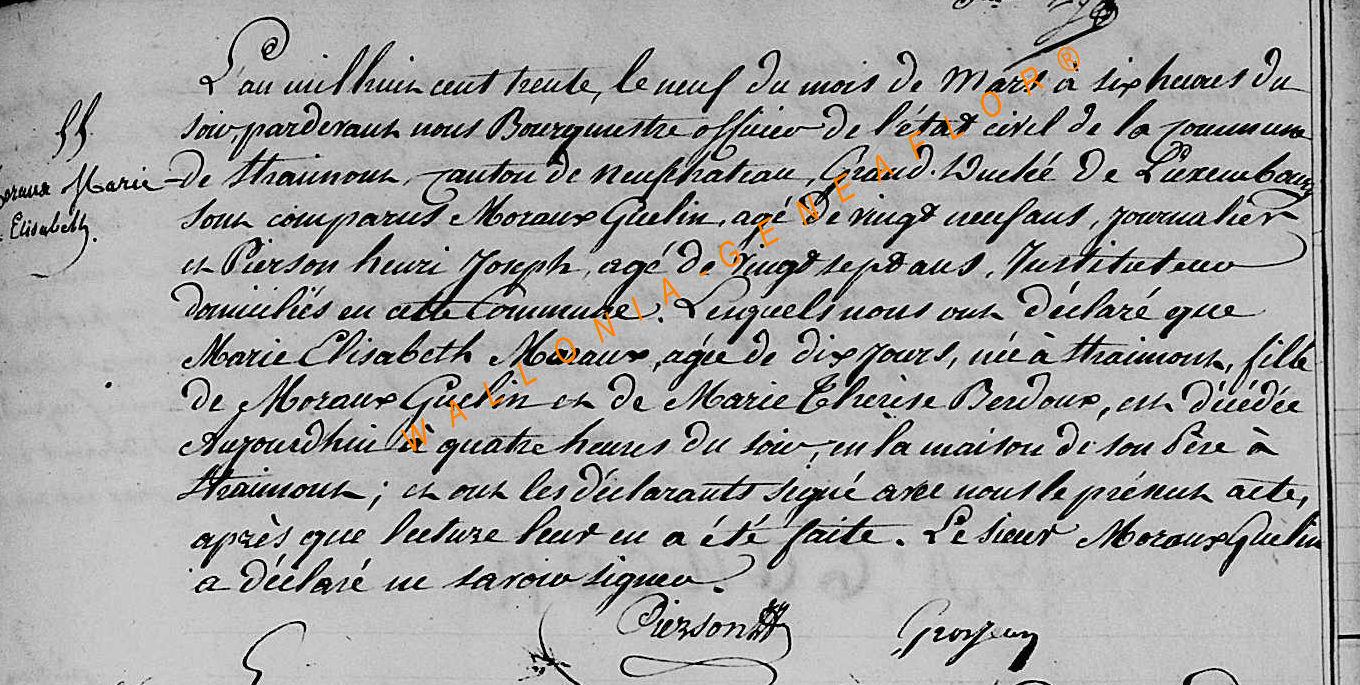 L'an mil huit cent trente, le neuf du mois de Mars à six heures du
soir, pardevant nous Bourgmestre officier de l'état civil de la commune
de Straimont, canton de neufchateau, Grand-Duché de Luxembourg
sont comparus Moraux Guelin, agé de vingt neuf ans, journalier
et Pierson henri Joseph, agé de vingt sept ans, Instituteur
domiciliés en cette Commune. Lesquels nous ont déclaré que
Marie Elisabeth Moraux, agée de dix jours, née à Straimont, fille
de Moraux Guelin et de Marie Thérèse Berdoux, est décédée
Aujourdhui à quatre heures du soir, en la maison de son Père à
Straimont; et ont les déclarants signé avec nous le présent acte,
après que lecture leur en a été faite. Le sieur Moraux Guelin
a déclaré ne savoir signer.
Pierson Grosjean
Moraux Marie
Elisabeth.
WALLONIA-GENEAFLOR®